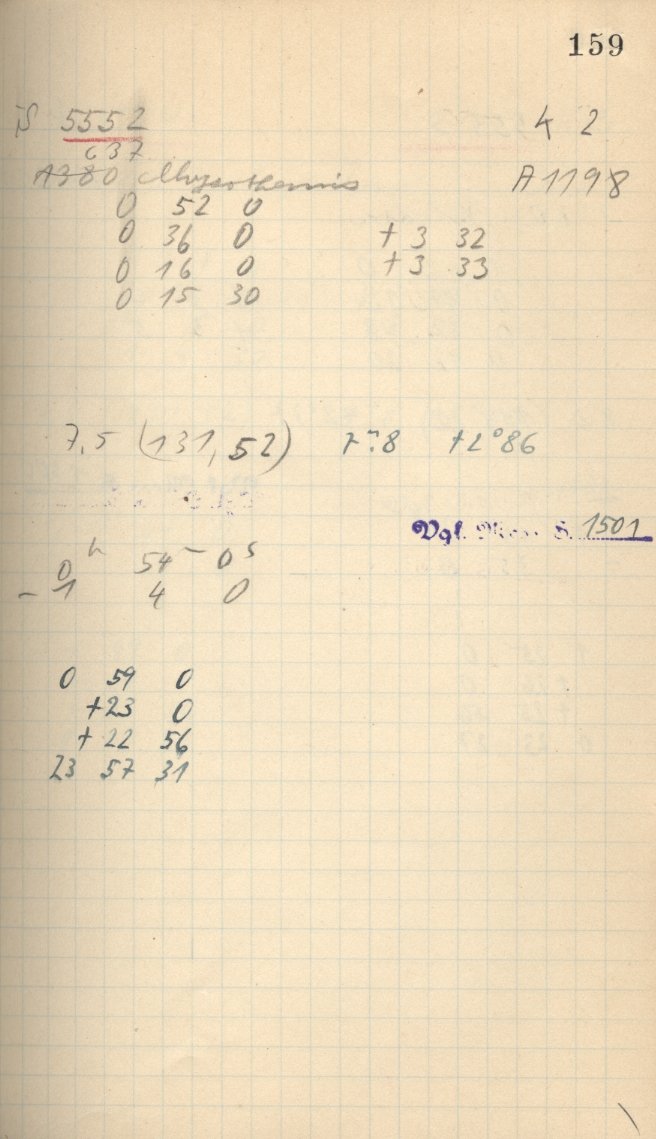 159
5552 4 2
c37
A380 Chrysothemis A1198
0 52 0
0 36 0 +3 32
0 16 0 +3 33
0 15 30
7,5 (131,52)
Vgl. S. 1501
0h 54m 0s
- 1 4 0
0 59 0
+23 0
+22 56
23 57 31